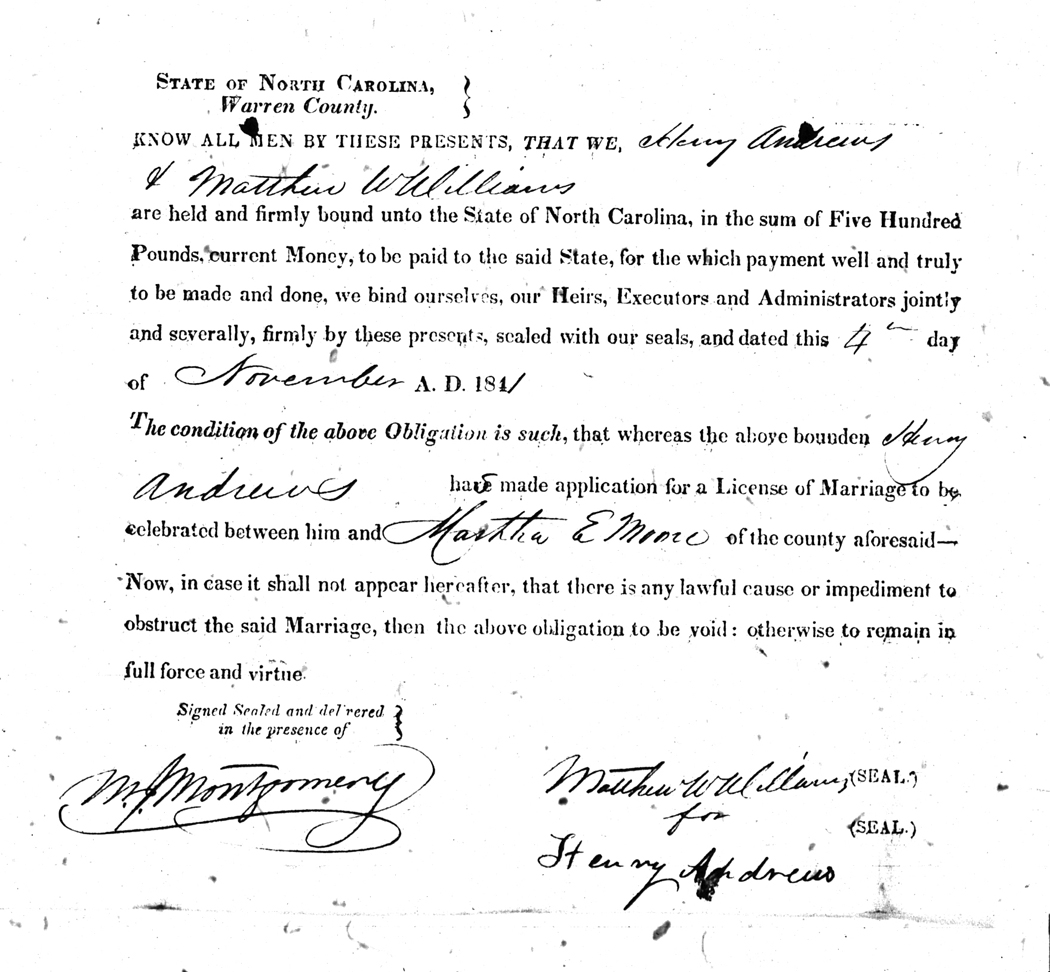 STATE OF NORTH CAROLINA,
Warren County.
KNOW ALL MEN BY THESE PRESENTS, THAT WE, Henry Andrews
& Matthew W Williams
are held and firmly bound unto the State of North Carolina, in the sum of Five Hundred
Pounds, current Money, to be paid to the said State, for the which payment well and truly
to be made and done, we bind ourselves, our Heirs, Executors and Administrators jointly
and severally, firmly by these presents, sealed with our seals, and dated this 4th day
of November A. D. 1841
The condition of the above Obligation is such, that whereas the above bounden Henry
Andrews has made application for a License of Marriage to be
celebrated between him and Martha E Moore of the county aforesaid—
Now, in case it shall not appear hereafter, that there is any lawful cause or impediment to
obstruct the said Marriage, then the above obligation to be void: otherwise to remain in
full force and virtue.
Signed Sealed and delivered
in the presence of
M J Montgomery
Matthew W Williams (SEAL.)
for (SEAL.)
Henry Andrews